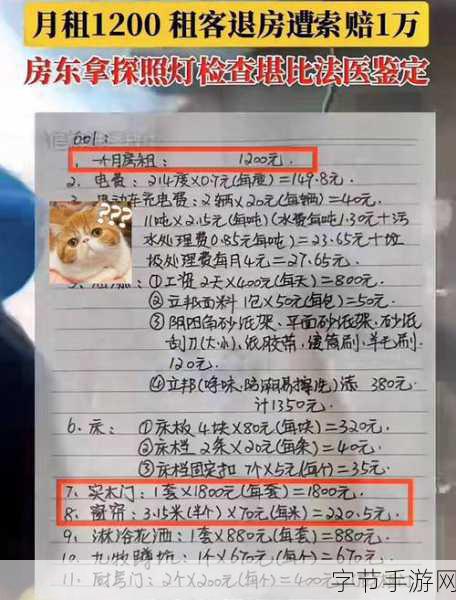 月租1200 租客退房遭索赔1万
房东拿探照灯检查堪比法医鉴定
601:
1、一个月房租: 1200元.
2、电费: 214度×0.7元(每度)=149.8元.
动车充电费: 2辆×20元(每辆)=40元.
11吨×2.15元(每吨)(水费每吨1.30元+污
水处理费0.85元每吨)=23.65元+垃
圾处理费每月4元=27.65元.
①工资 2天×400元(每天)=800元.
②立邦面料 1包×50元(每包)=50元.
③阴阳角砂纸架、平面砂纸架、砂纸
刮刀(大小)、纸胶带、滚筒刷、羊毛刷.
120元.
④立邦(净味、防潮易擦洗)漆 380元.
计1350元.
6、床: ①床板 4块×80元(每块)=320元.
②床档 2条×20元(每条)=40元.
③床档固定扣 7个×5元(每个)=35元.
7、实木门: 1套×1800元(每套)=1800元.
8、窗帘: 3.15米(半个)×70元(每米)=220.5元.
9、淋浴花洒: 1套×880元(每套)=880元.
10、九牧蹲坑: 1个×670元(每个)=670元.
11、厨房门: 2个×200元(每个)=400元
字节手游网